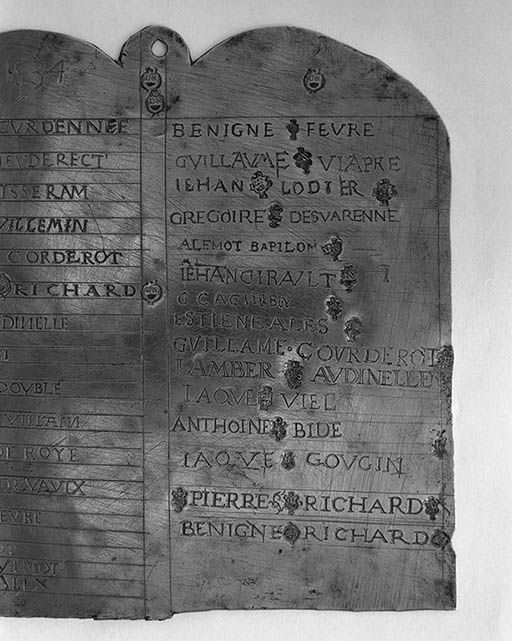 534
CVRDENNEE
EVDERECT
ISSERAM
VILLEMIN
CORDEROT
RICHARD
DINELLE
DOVBLÉ
DE ROYE
DEVAVIX
EVRE
BENIGNE FEVRE
GVILLAVME VIAPRE
IEHAN LODIER
GREGOIRE DESVARENNE
ALEMOT BAPILOM
AL
IEHAN GIRAVLT
ESTIENE ALES
GVILLAME GOVRDEROT
LAMBER AVDINELLE
IAQVE VIEL
ANTHOINE BIDE
IAQVE GOVGIN
PIERRES RICHARD
BENIGNE RICHARD